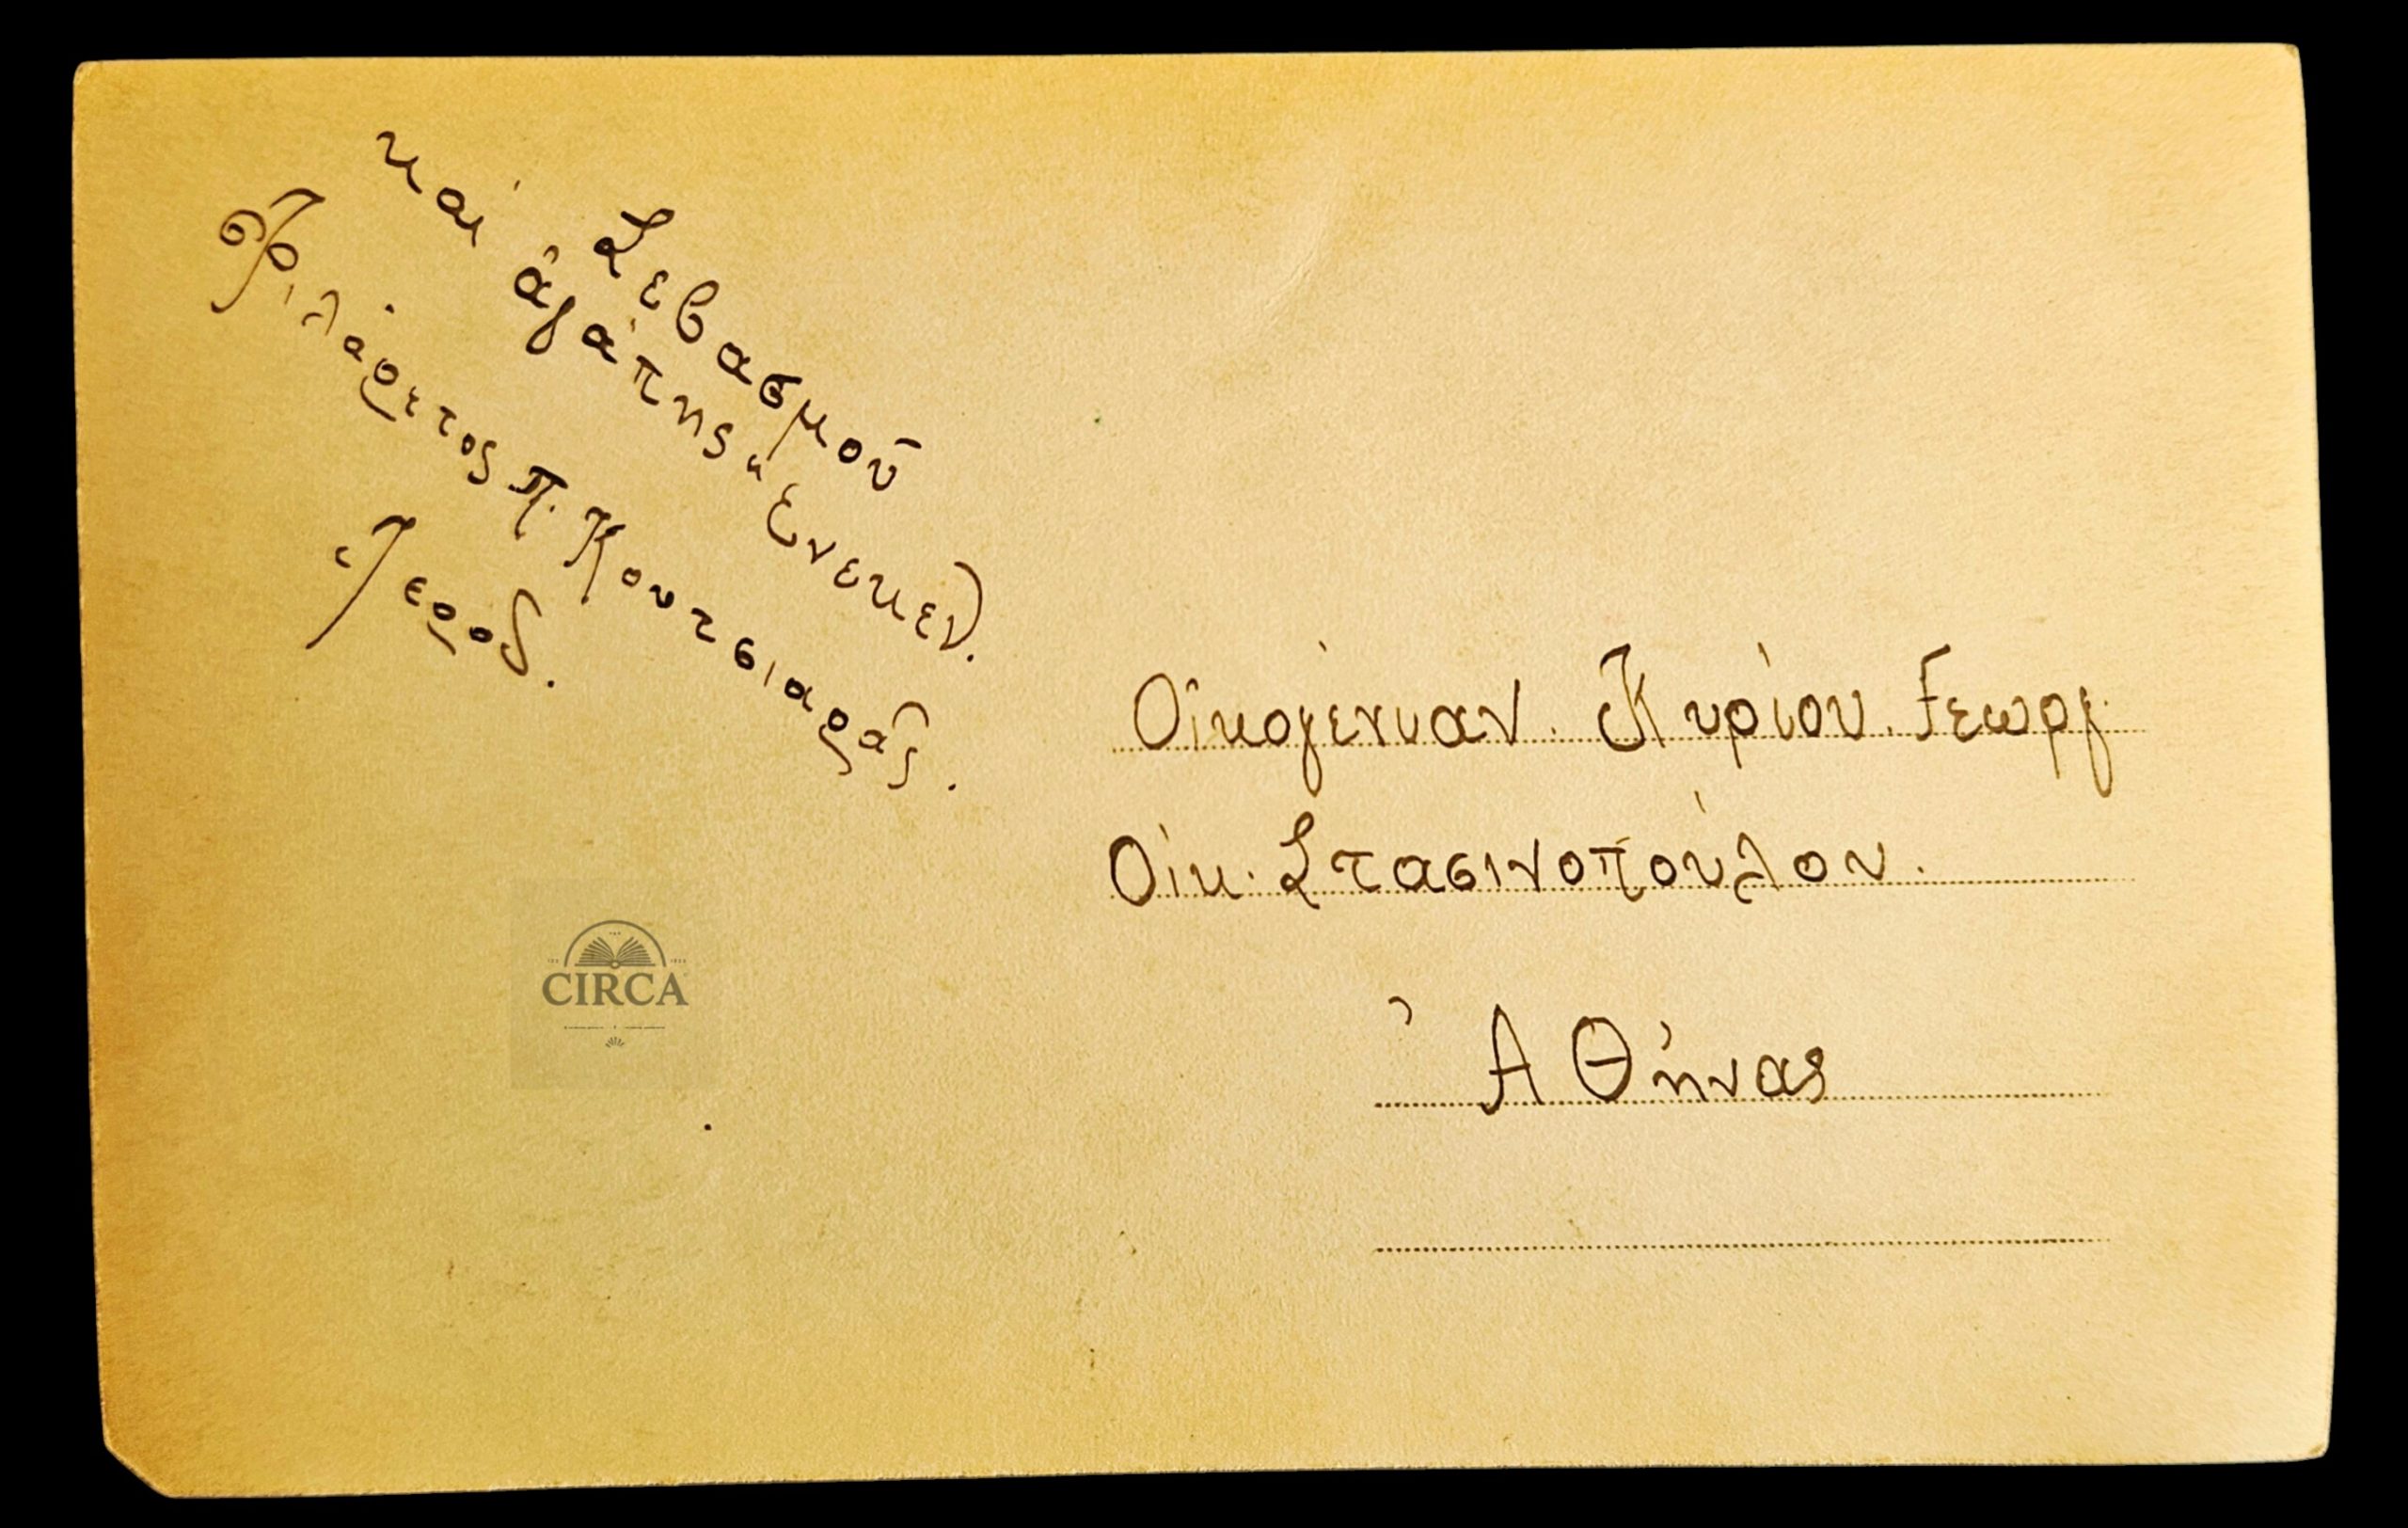 Σεβασμοῦ
καὶ ἀγάπης ἕνεκεν.
Φιλάρετος Π. Κουτσιαρᾶς.
Ἱεροδ.
Οἰκογένειαν Κυρίου Γεωργ.
Οἰκ. Στασινοπούλου.
Ἀθήνας
CIRCA